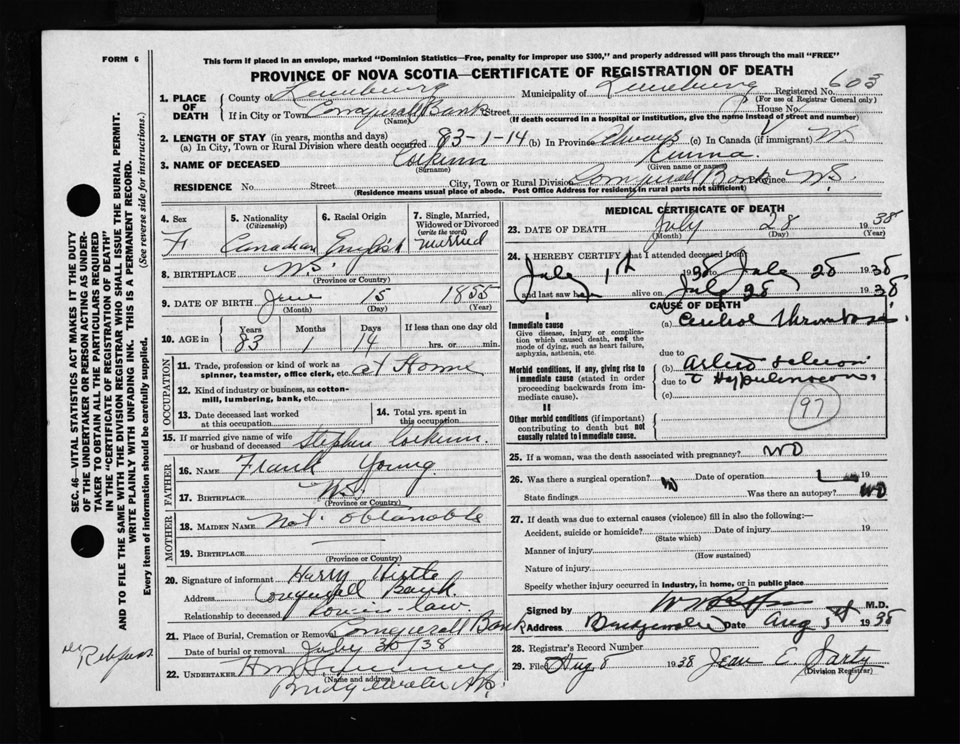 FORM 6
This form if placed in an envelope, marked "Dominion Statistics—Free, penalty for improper use $300," and properly addressed will pass through the mail "FREE"
PROVINCE OF NOVA SCOTIA—CERTIFICATE OF REGISTRATION OF DEATH
1. PLACE OF DEATH County of Lunenburg Municipality of Lunenburg Registered No. 603
(For use of Registrar General only)
If in City or Town Conquerall Bank Street House No.
(Name) (If death occurred in a hospital or institution, give the name instead of street and number)
2. LENGTH OF STAY (in years, months and days)
(a) In City, Town or Rural Division where death occurred 83-1-14 (b) In Province always (c) In Canada (if immigrant)
3. NAME OF DECEASED Corkum
(Surname) (Given name or names)
RESIDENCE No. Street City, Town or Rural Division Conquerall Bank Province N.S.
(Residence means usual place of abode. Post Office Address for residents in rural parts not sufficient)
4. Sex F
5. Nationality (Citizenship) Canadian
6. Racial Origin English
7. Single, Married, Widowed or Divorced (write the word) Married
8. BIRTHPLACE N.S.
(Province or Country)
9. DATE OF BIRTH June 15 1855
(Month) (Day) (Year)
10. AGE in Years 83 Months 1 Days 14 If less than one day old hrs. or min.
OCCUPATION
11. Trade, profession or kind of work as spinner, teamster, office clerk, etc. at Home
12. Kind of industry or business, as cotton-mill, lumbering, bank, etc.
13. Date deceased last worked at this occupation
14. Total yrs. spent in this occupation
15. If married give name of wife or husband of deceased Stephen Corkum.
FATHER
16. NAME Frank Young
17. BIRTHPLACE N.S.
(Province or Country)
MOTHER
18. MAIDEN NAME Not obtanable
19. BIRTHPLACE
(Province or Country)
20. Signature of informant Harry Hirtle
Address Conquerall Bank.
Relationship to deceased son-in-law
21. Place of Burial, Cremation or Removal Conquerall Bank
Date of burial or removal July 30/38
22. UNDERTAKER
(Name and address)
Bridgewater N.S.
MEDICAL CERTIFICATE OF DEATH
23. DATE OF DEATH July 28 1938
(Month) (Day) (Year)
24. I HEREBY CERTIFY that I attended deceased from
July 1th 1938 to July 28 1938
and last saw her alive on July 28 1938
CAUSE OF DEATH
I
Immediate cause
Give disease, injury or complication which caused death, not the mode of dying, such as heart failure, asphyxia, asthenia, etc.
(a) Cerebral Thrombosis
due to
Morbid conditions, if any, giving rise to immediate cause (stated in order proceeding backwards from immediate cause).
(b) Arterio sclerosis
due to
(c)
II
Other morbid conditions (if important) contributing to death but not causally related to immediate cause.
97
25. If a woman, was the death associated with pregnancy? NO
26. Was there a surgical operation? Date of operation 19
State findings Was there an autopsy? NO
27. If death was due to external causes (violence) fill in also the following:—
Accident, suicide or homicide? Date of injury 19
(State which)
Manner of injury
(How sustained)
Nature of injury
Specify whether injury occurred in industry, in home, or in public place
Signed by M.D.
Address Bridgewater Date Aug 1938
28. Registrar's Record Number
29. Filed Aug 8 1938 Jean E. Sarty
(Division Registrar)
SEC. 46—VITAL STATISTICS ACT MAKES IT THE DUTY
OF THE UNDERTAKER OR PERSON ACTING AS UNDER-
TAKER TO OBTAIN ALL THE PARTICULARS REQUIRED
IN THE "CERTIFICATE OF REGISTRATION OF DEATH"
AND TO FILE THE SAME WITH THE DIVISION REGISTRAR WHO SHALL ISSUE THE BURIAL PERMIT.
WRITE PLAINLY WITH UNFADING INK. THIS IS A PERMANENT RECORD.
Every item of information should be carefully supplied. (See reverse side for instructions.)